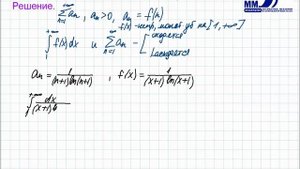 Решение.
ММ
∑ aₙ, aₙ>0, aₙ = f(n)
n=1
f(x) - непр., монот. уб на [1, +∞)
∫₁^{+∞} f(x)dx и ∑_{n=1}^{∞} aₙ - [ сходятся
aₙ = 1/((n+1)ln(n+1)) , f(x) = 1/((x+1)ln(x+1))
∫₁^{+∞} dx/((x+1)l